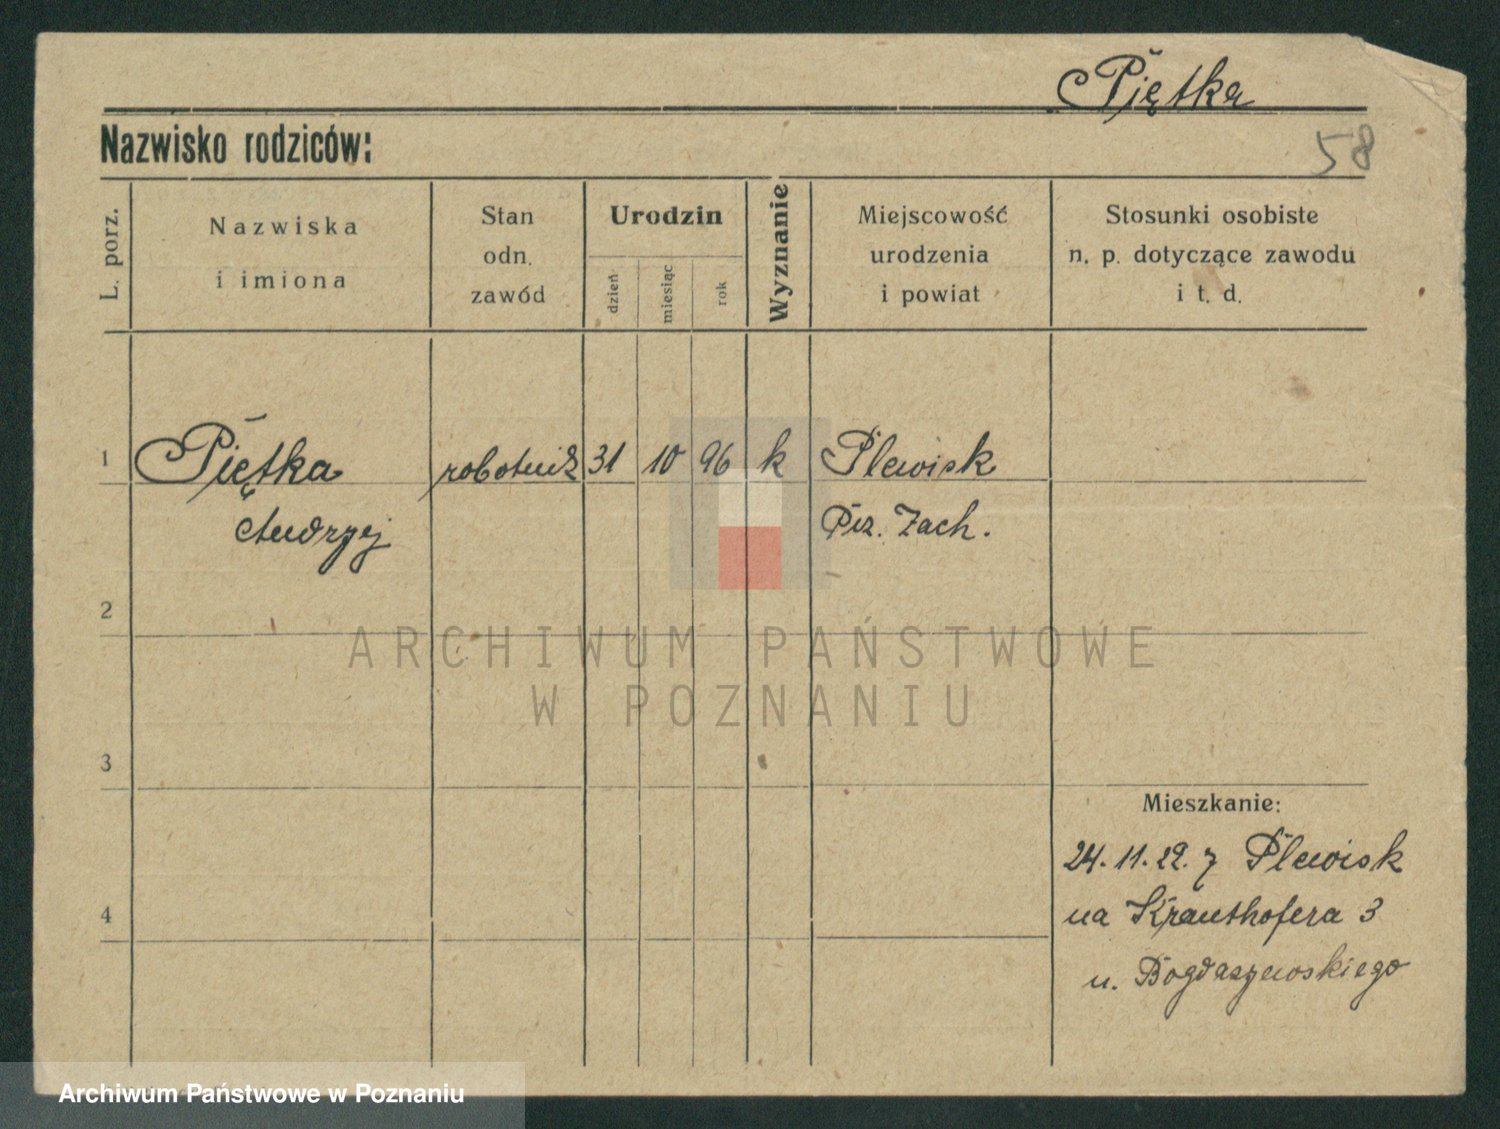 Piętka
Nazwisko rodziców:
58
L. porz.
Nazwiska
i imiona
Stan
odn.
zawód
Urodzin
dzień
miesiąc
rok
Wyznanie
Miejscowość
urodzenia
i powiat
Stosunki osobiste
n. p. dotyczące zawodu
i t. d.
1 Piętka robotnik 31 10 96 k Plewisk
Andrzej Pzn. Zach.
2
ARCHIWUM PAŃSTWOWE
W POZNANIU
3
Mieszkanie:
24.11.29. z Plewisk
4 na Krauthofera 3
u. Bogdaszewskiego
Archiwum Państwowe w Poznaniu